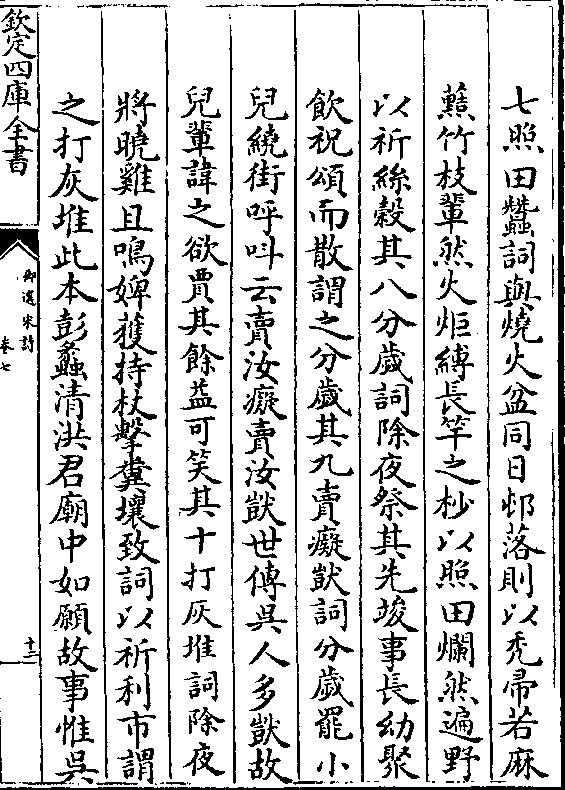 七照田蠶詞與燒火盆同日邨落則以禿帚若麻
蘸竹枝輩然火炬縛長竿之杪以照田爛然遍野
以祈絲穀其八分歲詞除夜祭其先竣事長幼聚
飲祝頌而散謂之分歲其九賣癡獃詞分歲罷小
兒繞街呼呌云賣汝癡賣汝獃世傳吳人多獃故
兒輩諱之欲賈其餘益可笑其十打灰堆詞除夜
將曉雞且鳴婢獲持杖擊糞壤致詞以祈利市謂
之打灰堆此本彭蠡清洪君廟中如願故事惟吳
欽定四庫全書
御選宋詩
卷七
十二